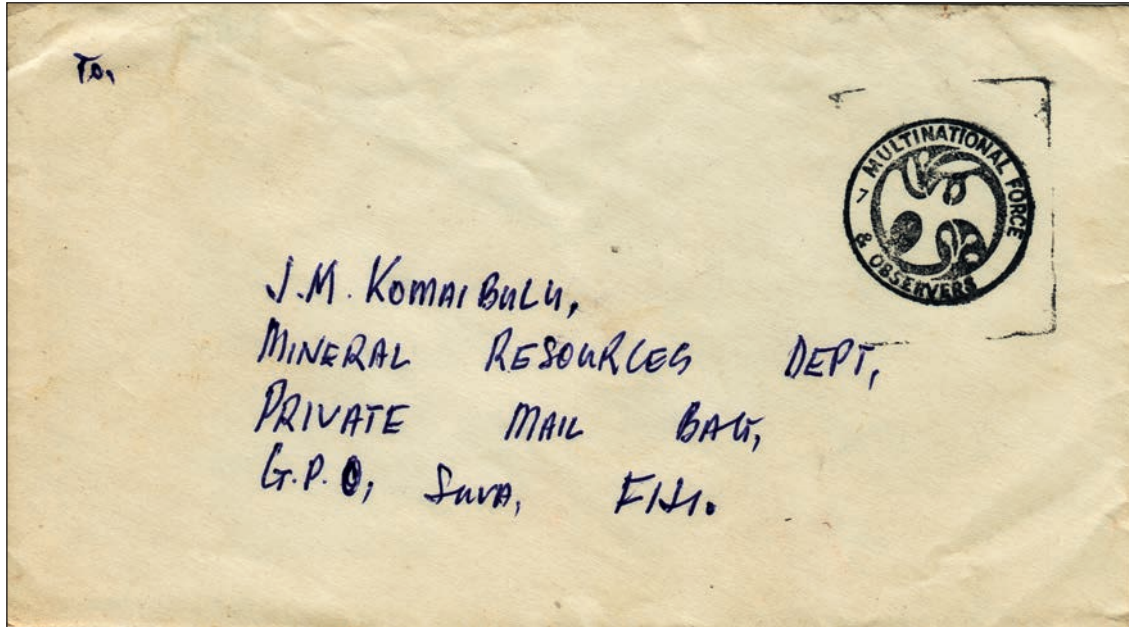 To,
MULTINATIONAL FORCE
& OBSERVERS
7
J.M. KOMAIBULU,
MINERAL RESOURCES DEPT,
PRIVATE MAIL BAG,
G.P.O, SUVA, FIJI.